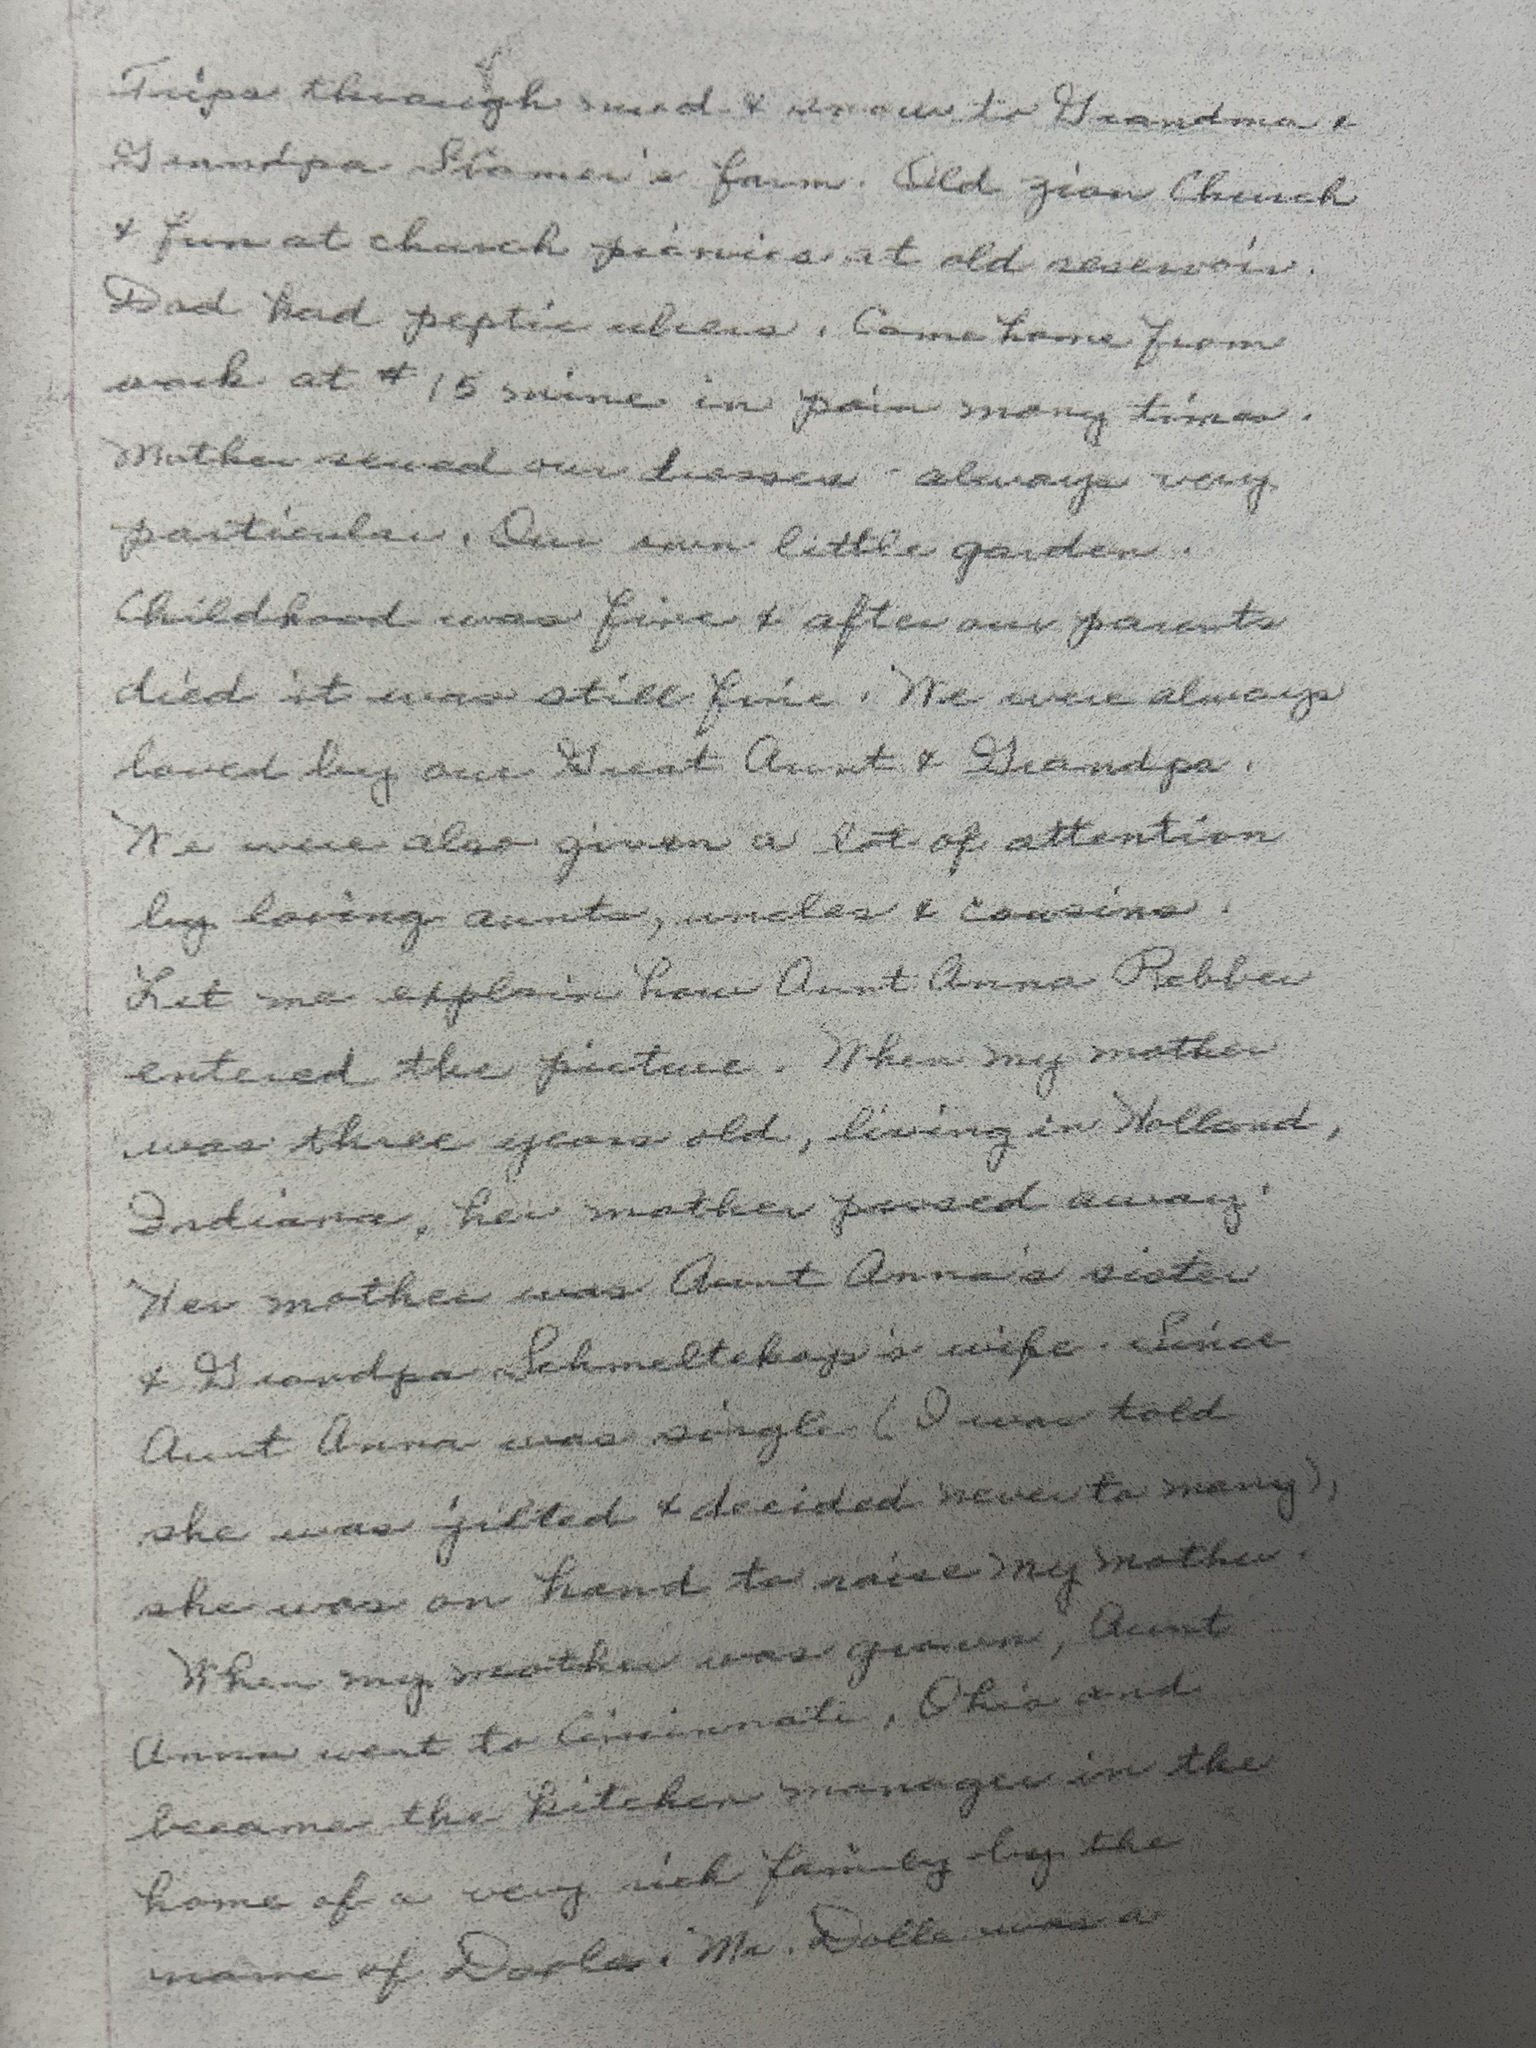 Trips through mud & snow to Grandma &
Grandpa Stamer's farm. Old Zion Church
& fun at church picnics at old reservoir.
Dad had peptic ulcers. Came home from
work at #15 mine in pain many times.
Mother sewed our dresses - always very
particular. Our own little garden.
Childhood was fine & after our parents
died it was still fine. We were always
loved by our Great Aunt & Grandpa.
We were also given a lot of attention
by loving aunts, uncles & cousins.
Let me explain how Aunt Anna Rebber
entered the picture. When my mother
was three years old, living in Holland,
Indiana, her mother passed away.
Her mother was Aunt Anna's sister
& Grandpa Schmeltekop's wife. Since
Aunt Anna was single (I was told
she was jilted & decided never to marry),
she was on hand to raise my mother.
When my mother was grown, Aunt
Anna went to Cincinnati, Ohio and
became the kitchen manager in the
home of a very rich family by the
name of . Mr. Dolle was a